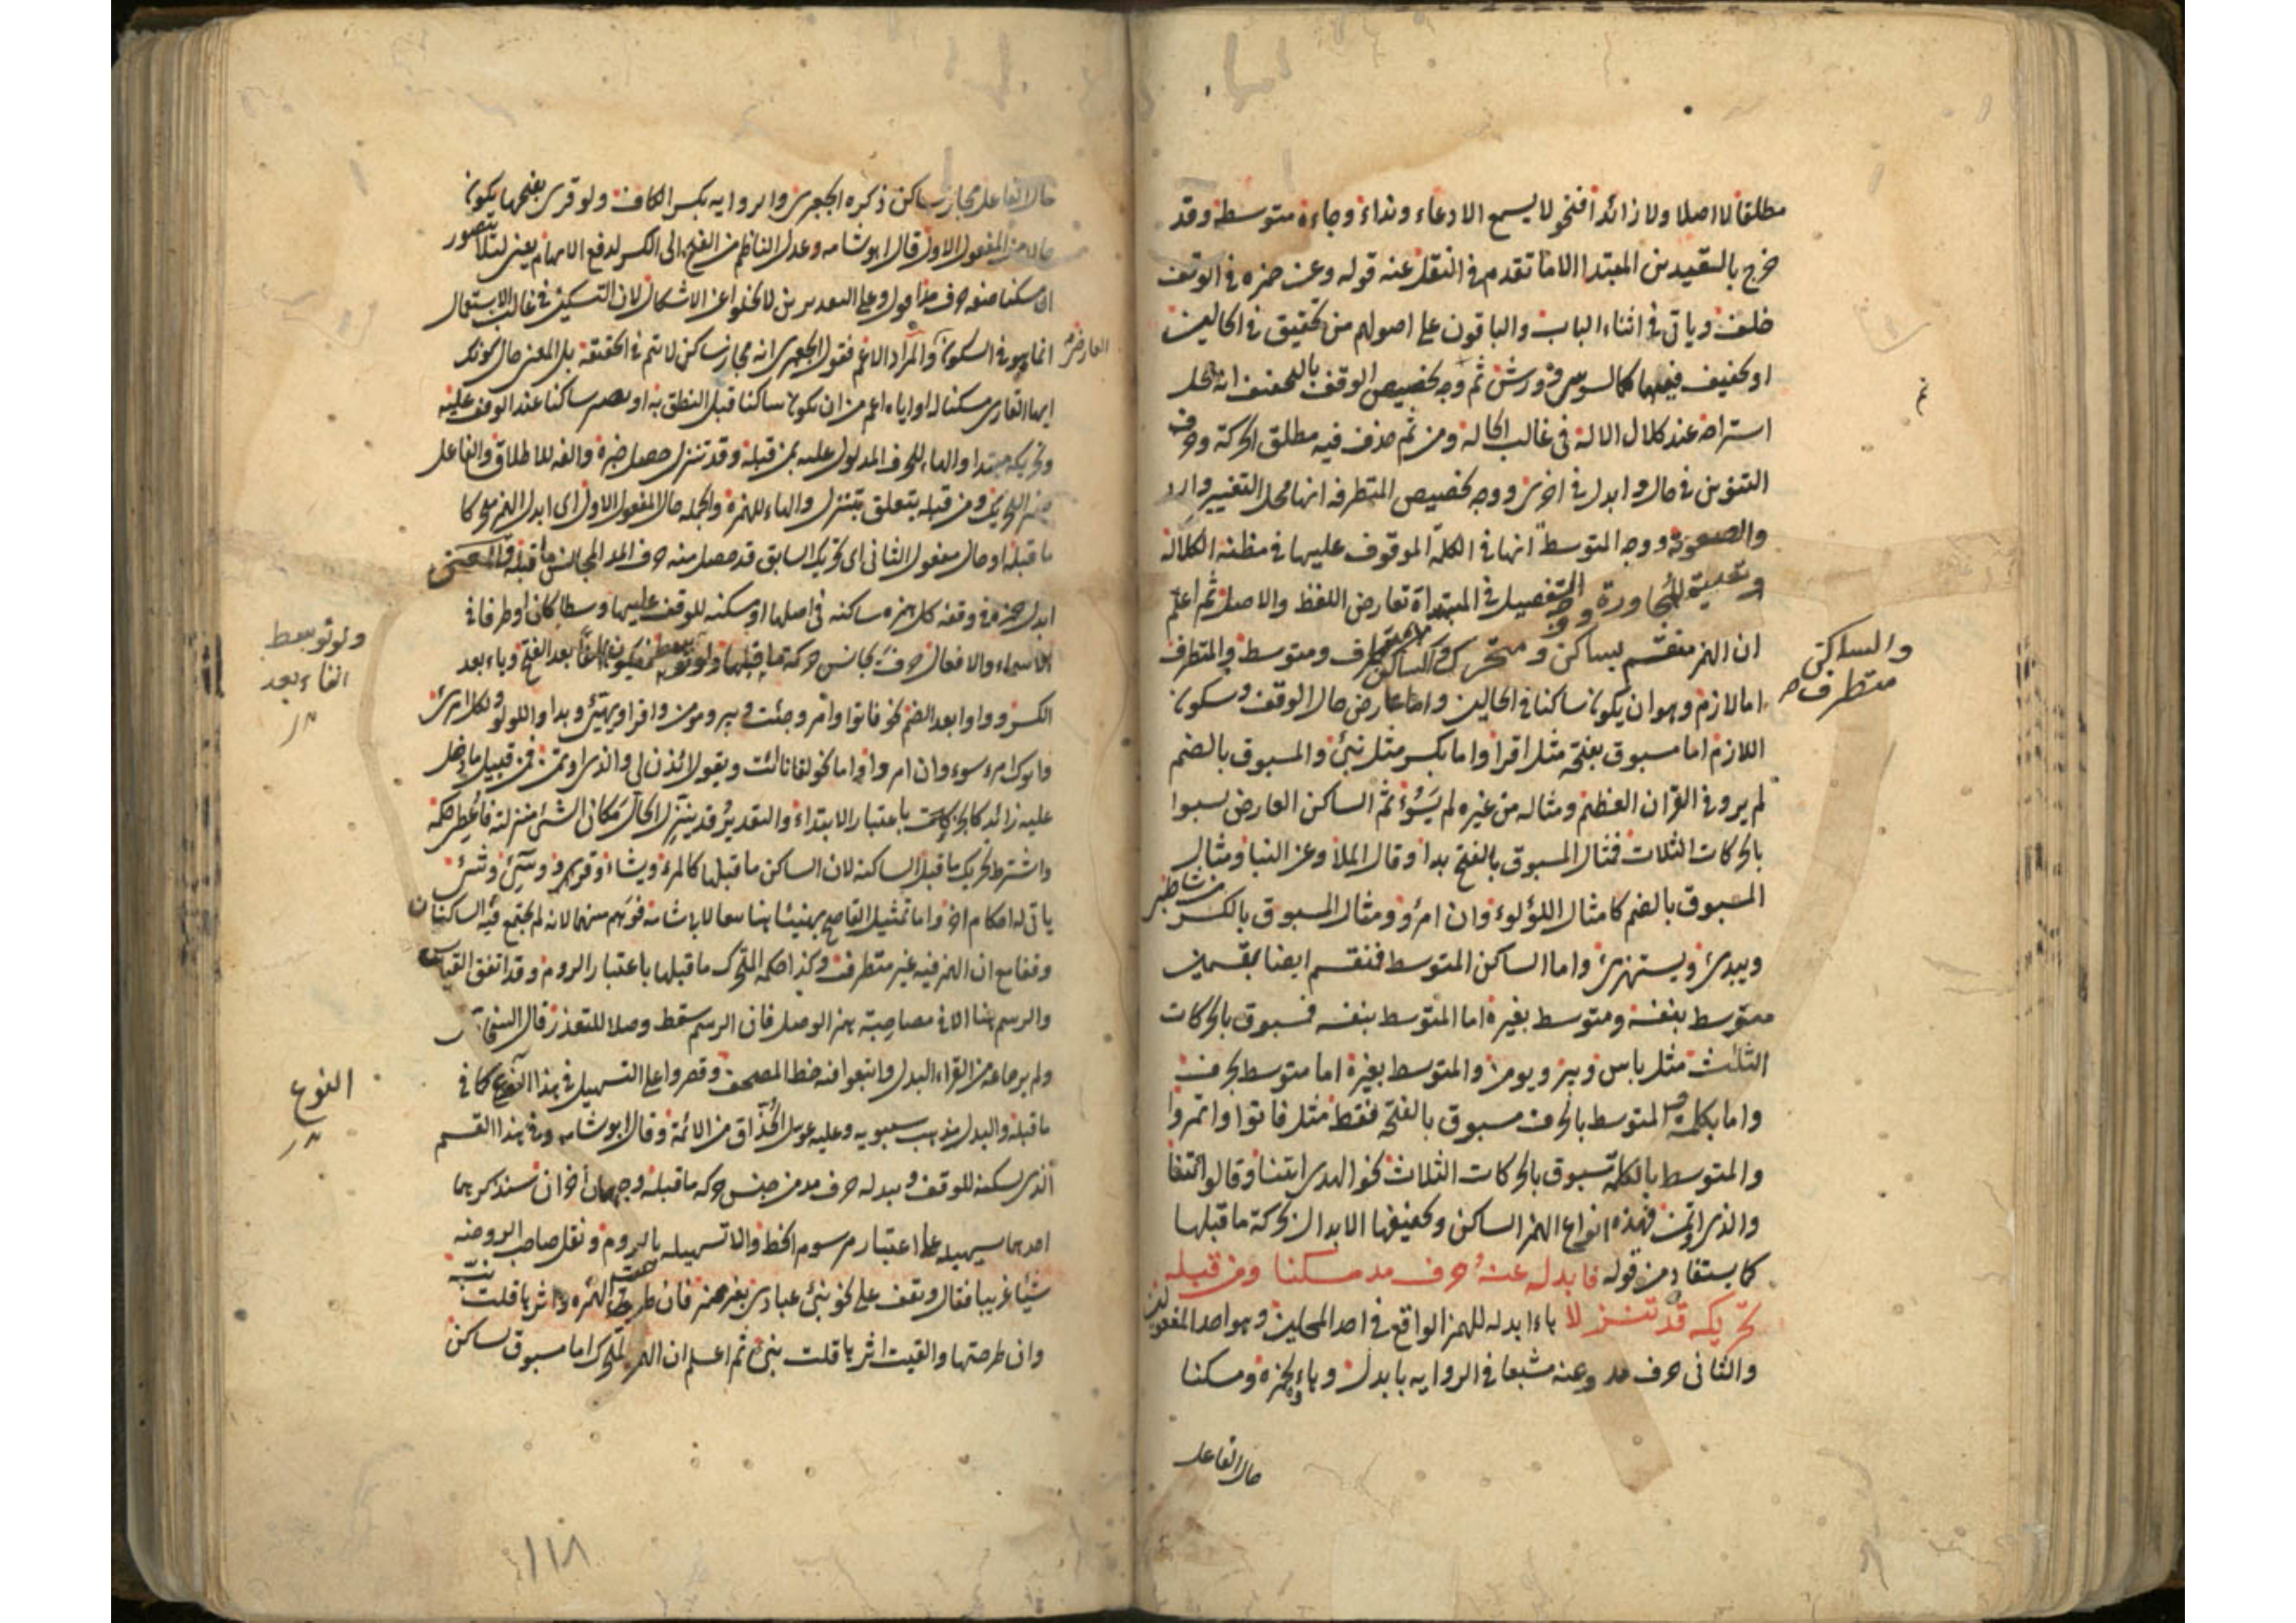 مطلقا لا اصلا ولا زائدا فنحو لا يسمع الا دعاء ونداء وجاءه متوسطة وقد
خرج بالتقييدين المبتدا الا ما تقدم في النقل عنه قوله وعن حمزة في الوقف
خلف وياتي في اثناء الباب والباقون على اصولهم من تحقيق في الحالين
او تخفيف فيهما كالسوسي وورش ثم وجه تخصيص الوقف بالتخفيف انه محل
استراحة عند كلال الالة في غالب الحالة ومن ثم حذف فيه مطلق الحركة وحرف
التنوين في حال وابدل في اخرى ووجه تخصيص المتطرفة انها محل التغيير وارد
والصعوبة ووجه المتوسط انها في الكلمة الموقوف عليها في مظنة الكلالة
المجاورة ووجه التفصيل في المبتداة تعارض اللفظ والاصل ثم اعلم
ان الهمز منقسم بساكن ومتحرك والساكن متطرف ومتوسط والمتطرف
والساكن
متطرف صح
اما لازم وهو ان يكون ساكنا في الحالين واما عارض حال الوقف وسكون
اللازم اما مسبوق بفتحة مثل اقرا واما بكسر مثل نبئ والمسبوق بالضم
لم يرو في القران العظيم ومثاله من غيره لم يَسُؤ ثم الساكن العارض يسبوا
بالحركات الثلاث فمثال المسبوق بالفتح بدا وقال الملأ وعن النبا ومثال
المسبوق بالضم كامثال اللؤلوء وان امرؤ ومثال المسبوق بالكسر من شاطئ
ويبدئ ويستهزئ واما الساكن المتوسط فنقسم ايضا بقسمين
متوسط بنفسه ومتوسط بغيره اما المتوسط بنفسه فمسبوق بالحركات
الثلث مثل باس وبير ويومن والمتوسط بغيره اما متوسط بحرف
واما بكلمة والمتوسط بالحرف مسبوق بالفتحة فقط مثل فاتوا واتمروا
والمتوسط بالكلمة مسبوق بالحركات الثلاث نحو الهدى ايتنا وقالوا ائتنا
والذي اوتمن فهذه انواع الهمز الساكن وتخفيفها الابدال بحركة ما قبلها
كما يستفاد من قوله فابدله عنه حرف مد مسكنا ومن قبله
تحريكه قد تنزلا ياء ابدله للهمز الواقع في احد المحلين وهو احد المفعولين
والثاني حرف مد وعنه مشبعا في الرواية بابدل وياؤه لحمزة ومسكنا
حال الفاعل
حال الفاعل مجاز ساكن ذكره الجعبري والرواية بكسر الكاف ولو قرئ بفتحها يكون
حالا من المفعول الاول قال ابو شامة وعدل الناظم من الفتح الى الكسر لدفع الابهام يعني لئلا يتصور
ان مسكنا صفة حرف مد اقول وعلى التقديرين لا يخلوا عن الاشكال لان التسكين في غالب الاستعمال
انما هو في السكون والمراد الاعم فقول الجعبري انه مجاز ساكن لا يتم في الحقيقة بل المعنى حال كونك
العارض
ايها القاري مسكنا له او اياه اعم من ان يكون ساكنا قبل النطق به او يصير ساكنا عند الوقف عليه
وتحريكه مبتدا والهاء للحرف المدلول عليه بمن قبله وقد تنزل حصل خبره والفه للاطلاق والفاعل
ضمير التحريك ومن قبله يتعلق بتنزل والهاء للهمزة والجملة حال المفعول الاول اي ابدل الهمز محركا
ما قبله او حال مفعول الثاني اي تحريك السابق قد حصل منه حرف المد المجانس ما قبله والمعنى
ابدل حمزة في وقفه كل همزة ساكنة في اصلها او مسكنة للوقف عليها وسطا كان او طرفا في
ولو توسط
الفاء بعد
الاسماء والافعال حرف يجانس حركة ما قبلها فيكون الفا بعد الفتح وياء بعد
الكسر وواوا بعد الضم نحو فاتوا وامر وجئت وبير ومومن واقرا ويهيئ وبدا واللولو ولكل امرئ
وابوك امرء سوء وان امرؤا واما نحو لقانا ائت ويقول ائذن لي والذي اوتمن فمن قبيل ما دخل
عليه زائد كالحركات باعتبار الابتداء والتقدير قد ينزل الحال مكان الشئ منزلته فاعطى حكمه
واشترط تحريك ما قبل الساكنة لان الساكن ما قبلها كالمرء ويشاء وقروء وسئ وشئ
ياتي له احكام اخر واما تمثيل القاصح بهنيئا هنا تبعا لابي شامة فوهم منهما لانه لم يجتمع فيه الساكنان
وقفا مع ان الهمز فيه غير متطرف وكذا حكم المتحرك ما قبلها باعتبار الروم وقد اتفق القياس
والرسم هنا الا في مصاحبة همز الوصل فان الرسم سقط وصلا للتعذر قال السخاوي
ولم ير جماعة من القراء البدل واتبعوا فيه خط المصحف وقصروا على التسهيل في هذا النوع كما في
النوع
ما قبله والبدل مذهب سيبويه وعليه عول الحذاق من الائمة وقال ابو شامة وفي هذا القسم
الذي يسكنه للوقف ويبدله حرف مد من جنس حركة ما قبله وجهان اخران سنذكرهما
احدهما تسهيله على اعتبار مرسوم الخط والا تسهيله بالروم ونقل صاحب الروضة
شيئا غريبا فقال وتقف على نحو نبئ عبادي بغير همز فان طرحت الهمزة واثرها قلت نب
وان طرحتها وابقيت اثرها قلت نبي ثم اعلم ان الهمز المتحرك اما مسبوق بساكن
١١٨